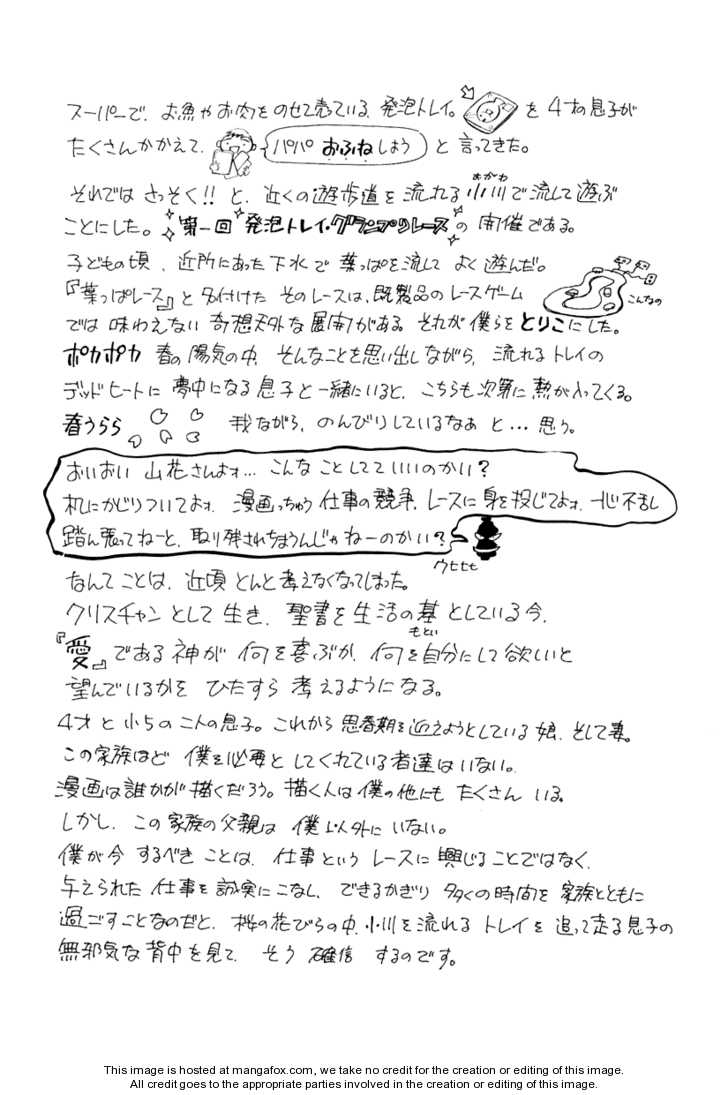 スーパーで、お魚やお肉をのせて売ている、発泡トレイ。を 4才の息子が
たくさんかかえて、パパ おふねしよう と 言ってきた。
それでは さっそく!! と、近くの遊歩道を 流れる 小川(おがわ)で流して遊ぶ
ことにした。第一回 発泡トレイ・グランプリレース の 開催である。
子どもの頃、近所にあった下水で 葉っぱを流して よく遊んだ。
『葉っぱレース』と 名付けた そのレースは、既製品のレースゲーム こんなの
では 味わえない 奇想天外な展開がある。それが僕らをとりこにした。
ポカポカ 春の陽気の中、そんなことを思い出しながら、流れるトレイの
デッドヒートに 夢中になる息子と一緒にいると、こちらも次第に熱が入ってくる。
春うらら 我ながら、のんびりしているなぁ と… 思う。
おいおい 山花さんよォ… こんな ことしてて いいのかい?
机にかじりついてよォ、漫画っちゅう 仕事の競争、レースに身を投じてよォ、一心不乱
踏ん張ってねーと、取り残されちまうんじゃねーのかい?
ウヒヒヒ
なんて ことは、近頃 とんと考えなくなってしまった。
クリスチャン として 生き、聖書を生活の基(もとい) としている今、
『愛』である神が 何を喜ぶか、何を自分にして欲しいと
望んでいるかを ひたすら 考えるようになる。
4才 と 小5の 二人の息子。これから 思春期を迎えようとしている 娘、そして妻。
この家族ほど 僕を必要と してくれている者達はいない。
漫画は誰かが描くだろう。描く人は僕の他にも たくさん いる。
しかし、この家族の父親は 僕以外に いない。
僕が今 するべき ことは、仕事という レースに興じることではなく、
与えられた 仕事を誠実にこなし、できるかぎり 多くの時間を家族とともに
過ごすことなのだと、桜の花びらの中、小川を流れる トレイを 追って走る息子の
無邪気な背中を見て、そう 確信 するのです。
This image is hosted at mangafox.com, we take no credit for the creation or editing of this image.
All credit goes to the appropriate parties involved in the creation or editing of this image.